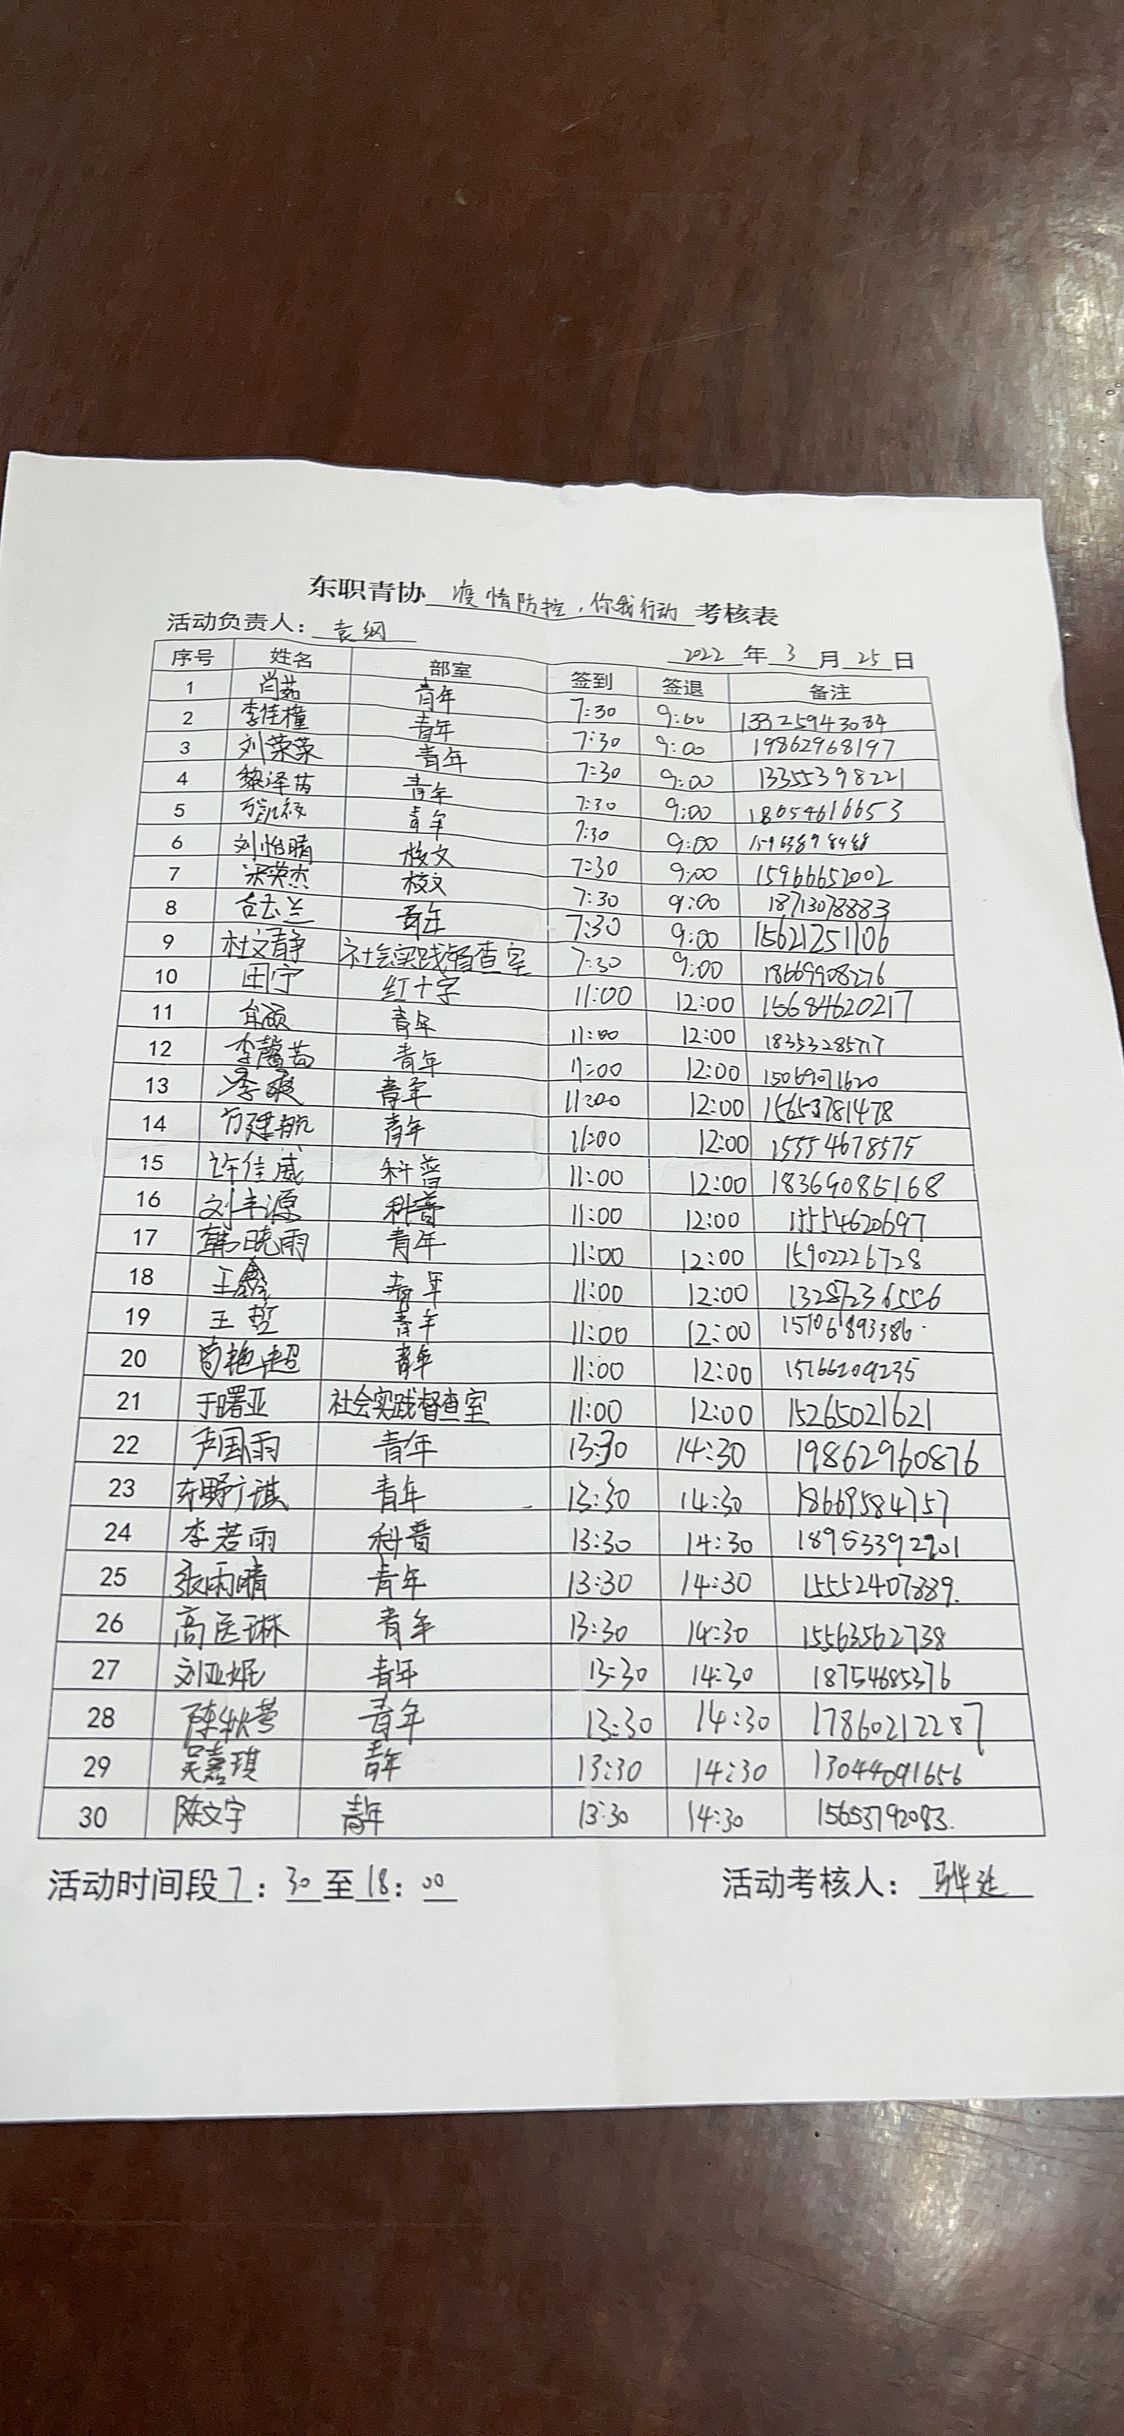 东职青协 疫情防控，你我行动 考核表
活动负责人：袁纲
2022 年 3 月 25 日
序号 姓名 部室 签到 签退 备注
1 肖茹 青年 7:30 9:00 13325943084
2 李佳橦 青年 7:30 9:00 19862968197
3 刘荣荣 青年 7:30 9:00 13355398221
4 黎泽芮 青年 7:30 9:00 18654616653
5 青年 7:30 9:00
6 刘怡晴 校文 7:30 9:00 15966652002
7 梁英杰 校文 7:30 9:00 18713078883
8 古玉兰 青年 7:30 9:00 15621251106
9 杜文静 社会实践督查室 7:30 9:00 18669908276
10 田宁 红十字 11:00 12:00 15684620217
11 青年 11:00 12:00 18353285717
12 李馨茹 青年 11:00 12:00 15069071620
13 李爽 青年 11:00 12:00 15653781478
14 万建航 青年 11:00 12:00 15554678575
15 许佳威 科普 11:00 12:00 18369085168
16 刘丰源 科普 11:00 12:00 15554620697
17 韩晓雨 青年 11:00 12:00 15902226728
18 王鑫 青年 11:00 12:00 13287236556
19 王哲 青年 11:00 12:00 15706893386
20 苟艳超 青年 11:00 12:00 15766209235
21 于曙亚 社会实践督查室 11:00 12:00 15265021621
22 芦国雨 青年 13:30 14:30 19862960876
23 东野广淇 青年 13:30 14:30 18669584757
24 李若雨 科普 13:30 14:30 18953392901
25 张雨晴 青年 13:30 14:30 15552407889.
26 高医琳 青年 13:30 14:30 15563562738
27 刘亚妮 青年 13:30 14:30 18754685376
28 陈秋萼 青年 13:30 14:30 17860212287
29 吴嘉琪 青年 13:30 14:30 13044091656
30 陈文宇 青年 13:30 14:30 15653792083.
活动时间段 7：30 至 18：00 活动考核人：